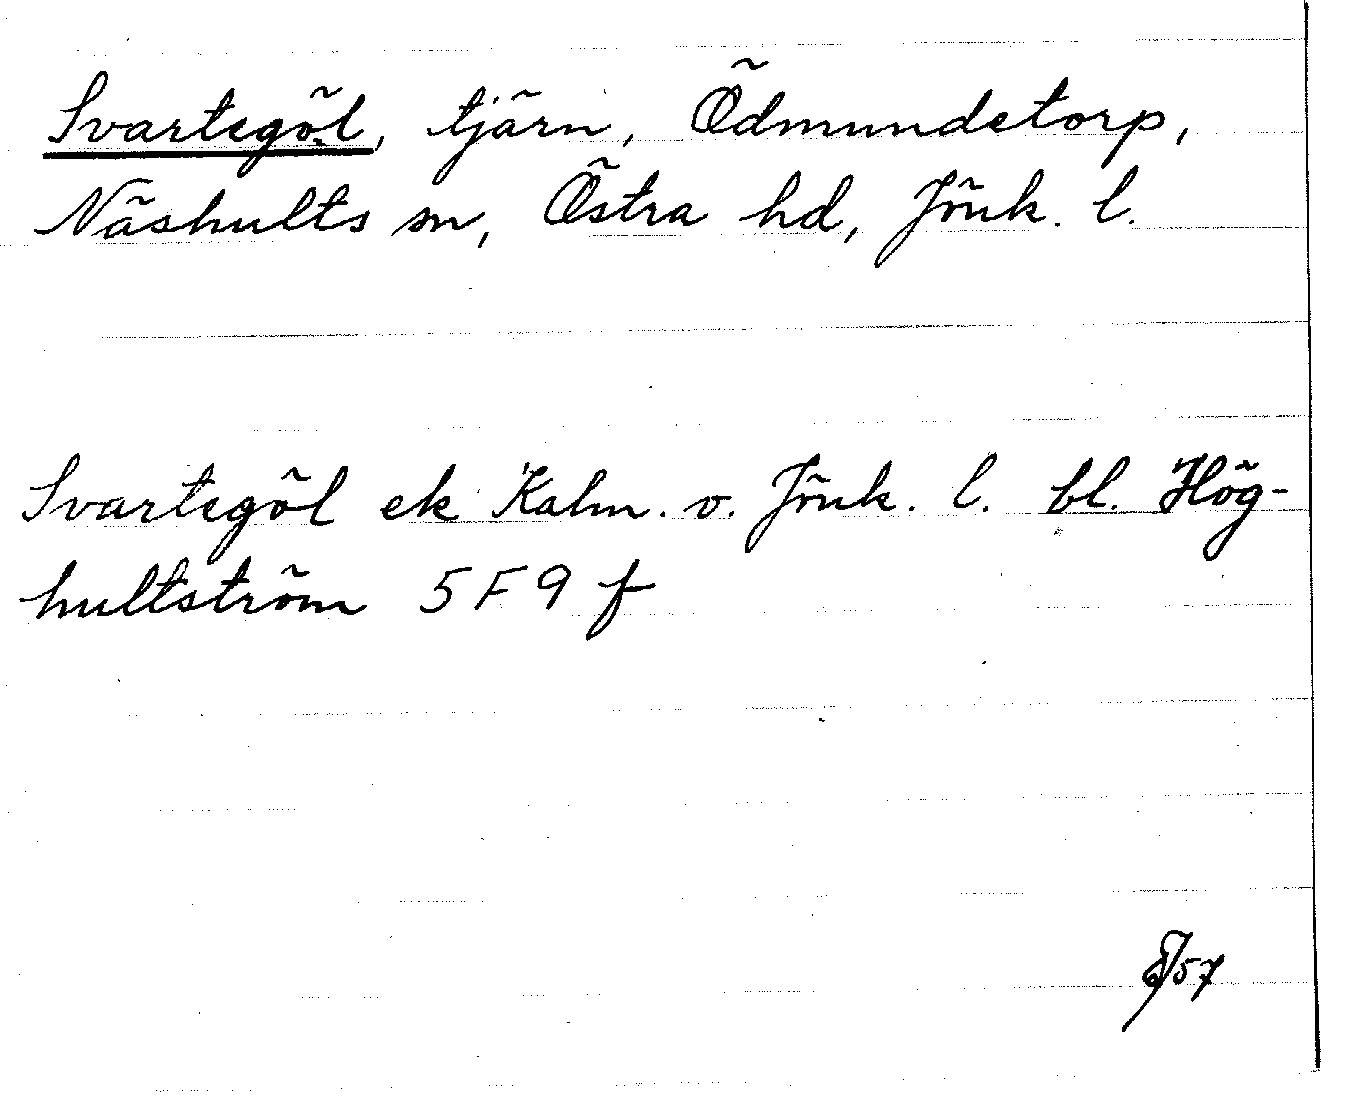 Svartegöl, tjärn, Ödmundetorp,
Näshults sn, Östra hd, Jönk. l.
Svartegöl ek Kalm. o. Jönk. l. bl. Hög-
hultström 5 F 9 f
57